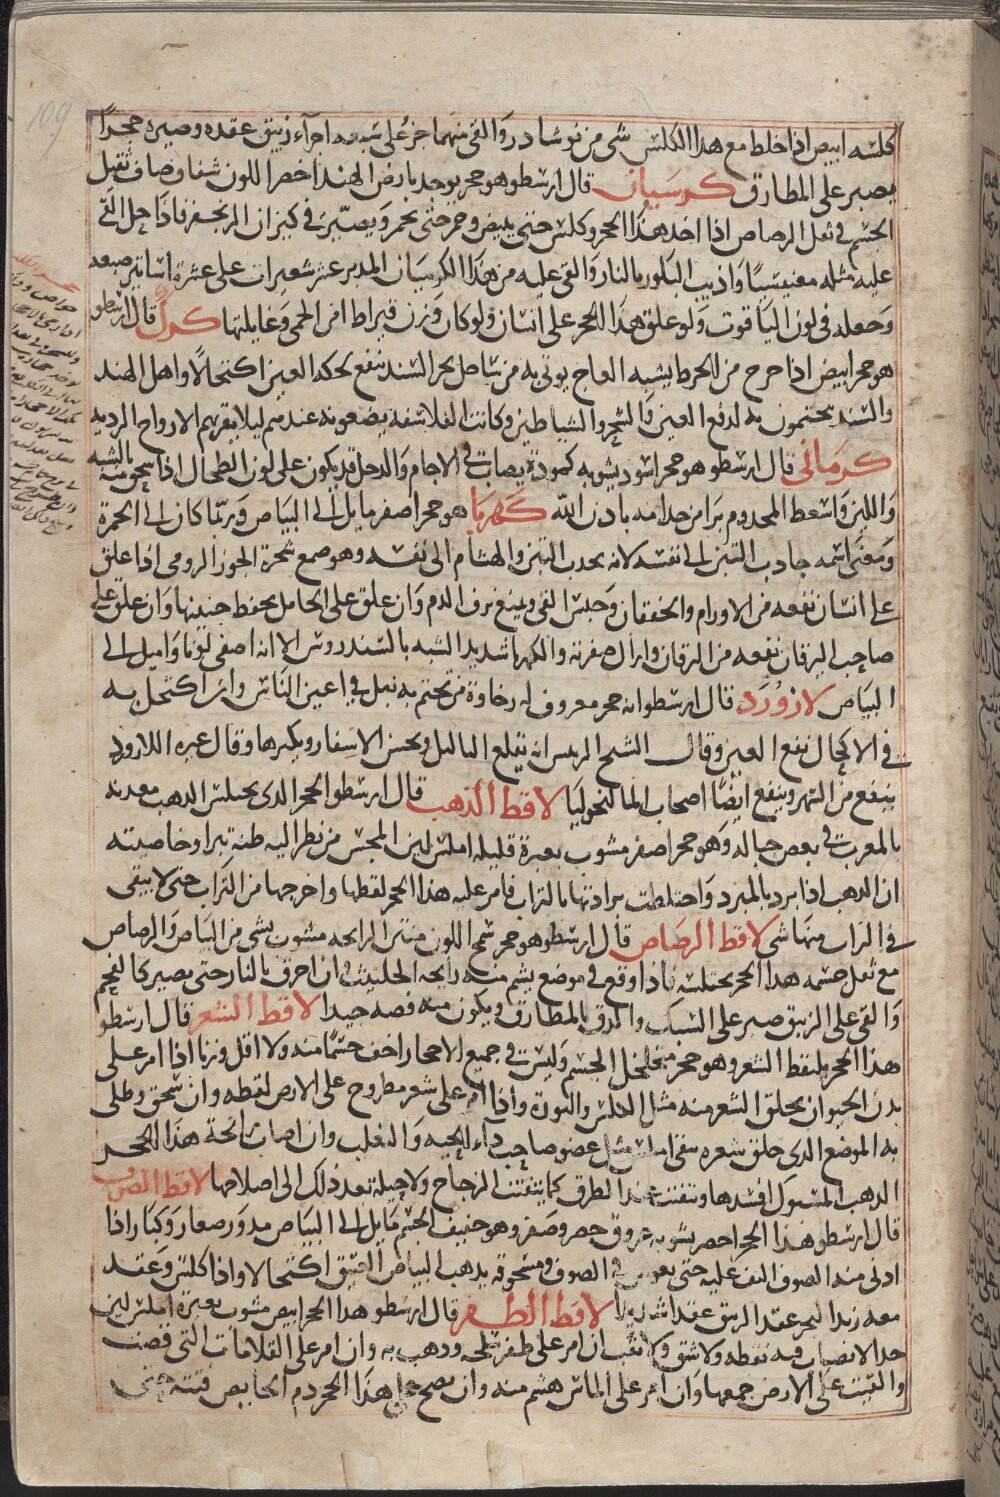 كلسه ابيض اذا خلط مع هذا الكلس شى من نوشادر والقى منهما جزء على سبعه اجزآء زيبق عقده وصيره حجرًا
يصبر على المطارق كرسيان قال ارسطو هو حجر يوجد بارض الهند اخضر اللون شفاف صاف ثقيل
الجسم فى ثقل الرصاص اذا اخذ هذا الحجر وكلس حتى يبيض وحمر حتى يحمر ويصير فى كيزان الزنجفر فاذا حل القى
عليه مثله مغنيسيا واذيب البلور بالنار والقى عليه من هذا الكرسيان المدبر عشر شعيرات على عشرة اساتير صبغه
وجعله فى لون الياقوت ولو علق هذا الحجر على انسان ولو كان وزن قيراط امن الحمى وغايلتها كرك قال ارسطو
هو حجر ابيض اذا خرج من الخرط يشبه العاج يوتى به من ساحل بحر السند ينفع لحكة العين اكتحالا واهل الهند
والسند يتختمون به لدفع العين والسحر والشياطين وكانت الفلاسفه يضعونه عندهم ليلا يقربهم الارواح الرديه
كرمانى قال ارسطو هو حجر اسود يشوبه كمودة يصاب فى الاجام والدحل قد يكون على لون الطحال اذا سحق منه بالشبه
واللبن واسعط المجذوم برا من جذامه باذن الله كهربا هو حجر اصفر مايل الى البياض وربما كان الى الحمرة
ومعنى اسمه جاذب التبن الى نفسه لانه يجذب التبن والهشام الى نفسه وهو صمغ شجرة الجوز الرومى اذا علق
على انسان نفعه من الاورام والخفقان وحبس القى ويمنع نزف الدم وان علق على الحامل يحفظ جنينها وان علق على
صاحب اليرقان نفعه من اليرقان وازال صفرته والكهربا شديد الشبه بالسندروس الا انه اصفى لونا واميل الى
البياض لازورد قال ارسطو انه حجر معروف له رخاوة من تختم به نبل فى اعين الناس وان اكتحل به
فى الاكحال نفع العين وقال الشيخ الريس انه يقلع الثاليل ويحسن الاشفار ويكثرها وقال غيره اللازورد
ينفع من السهر وينفع ايضًا اصحاب المالنخوليا لاقط الذهب قال ارسطو الحجر الذى يختلس الذهب معدنه
بالمغرب فى بعض جباله وهو حجر اصفر مشوب بغبرة قليلة املس لين المجس من نظر اليه ظنه تبرا وخاصيته
ان الذهب اذا برد بالمبرد واختلطت برادتها بالتراب فامر عليه هذا الحجر لقطها واخرجها من التراب حتى لا يبقى
فى التراب منها شى لاقط الرصاص قال ارسطو هو حجر سمج اللون منتن الرايحه مشوب بشى من البياض والرصاص
مع ثقل جسمه هذا الحجر يختلسه فاذا وقع فى موضع يشم منه رايحة الحلتيت فان احرق بالنار حتى يصير كالفحم
والقى على الزيبق صبر على السبك والدق بالمطارق ويكون منه فضه جيدا لاقط الشعر قال ارسطو
هذا الحجر يلتقط الشعر وهو حجر متخلخل الجسم وليس فى جميع الاحجار اخف جسمًا منه ولا اقل وزنا اذا امر على
بدن الحيوان يحلق الشعر منه مثل الكلس والنورة واذا امر على شعر مطروح على الارض لقطه وان سحق وطلى
به الموضع الذى حلق شعره بقى املس مثل عضو صاحب داء الحيه والثعلب وان اصاب رائحة هذا الحجر
الذهب المسبوك افسدها وتفتت عند الطرق كما يتفتت الزجاج ولا حيلة بعد ذلك الى اصلاحها لاقط الصوف
قال ارسطو هذا الحجر احمر يشوبه عروق خضر وصفر وهو خفيف الجسم مايل الى البياض مدور صغار وكبار اذا
ادنى منه الصوف التف عليه حتى يغوص فى الصوف ومسحوقه يذهب البياض العتيق اكتحالا واذا كلس وعقد
معه زبد البحر عقد الزيبق عقدا شديدا لاقط الظفر قال ارسطو هذا الحجر ابيض مشوب بغبرة املس لين
جدا لا يصاب فيه نقطه ولا شق ولا ثقب ان امر على ظفر قلعه وذهب به وان امر على القلامات التى قصت
والقيت على الارض جمعها وان امر على الماس هشم منه وان نضح على هذا الحجر دم الحايض فتته حتى